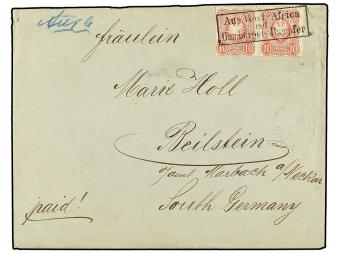 Aus West-Africa
mit
Hamburger Dampfer
10 10 10 10
fräulein
Marie Holl
Beilstein
Marbach a/Neckar
South Germany
paid!